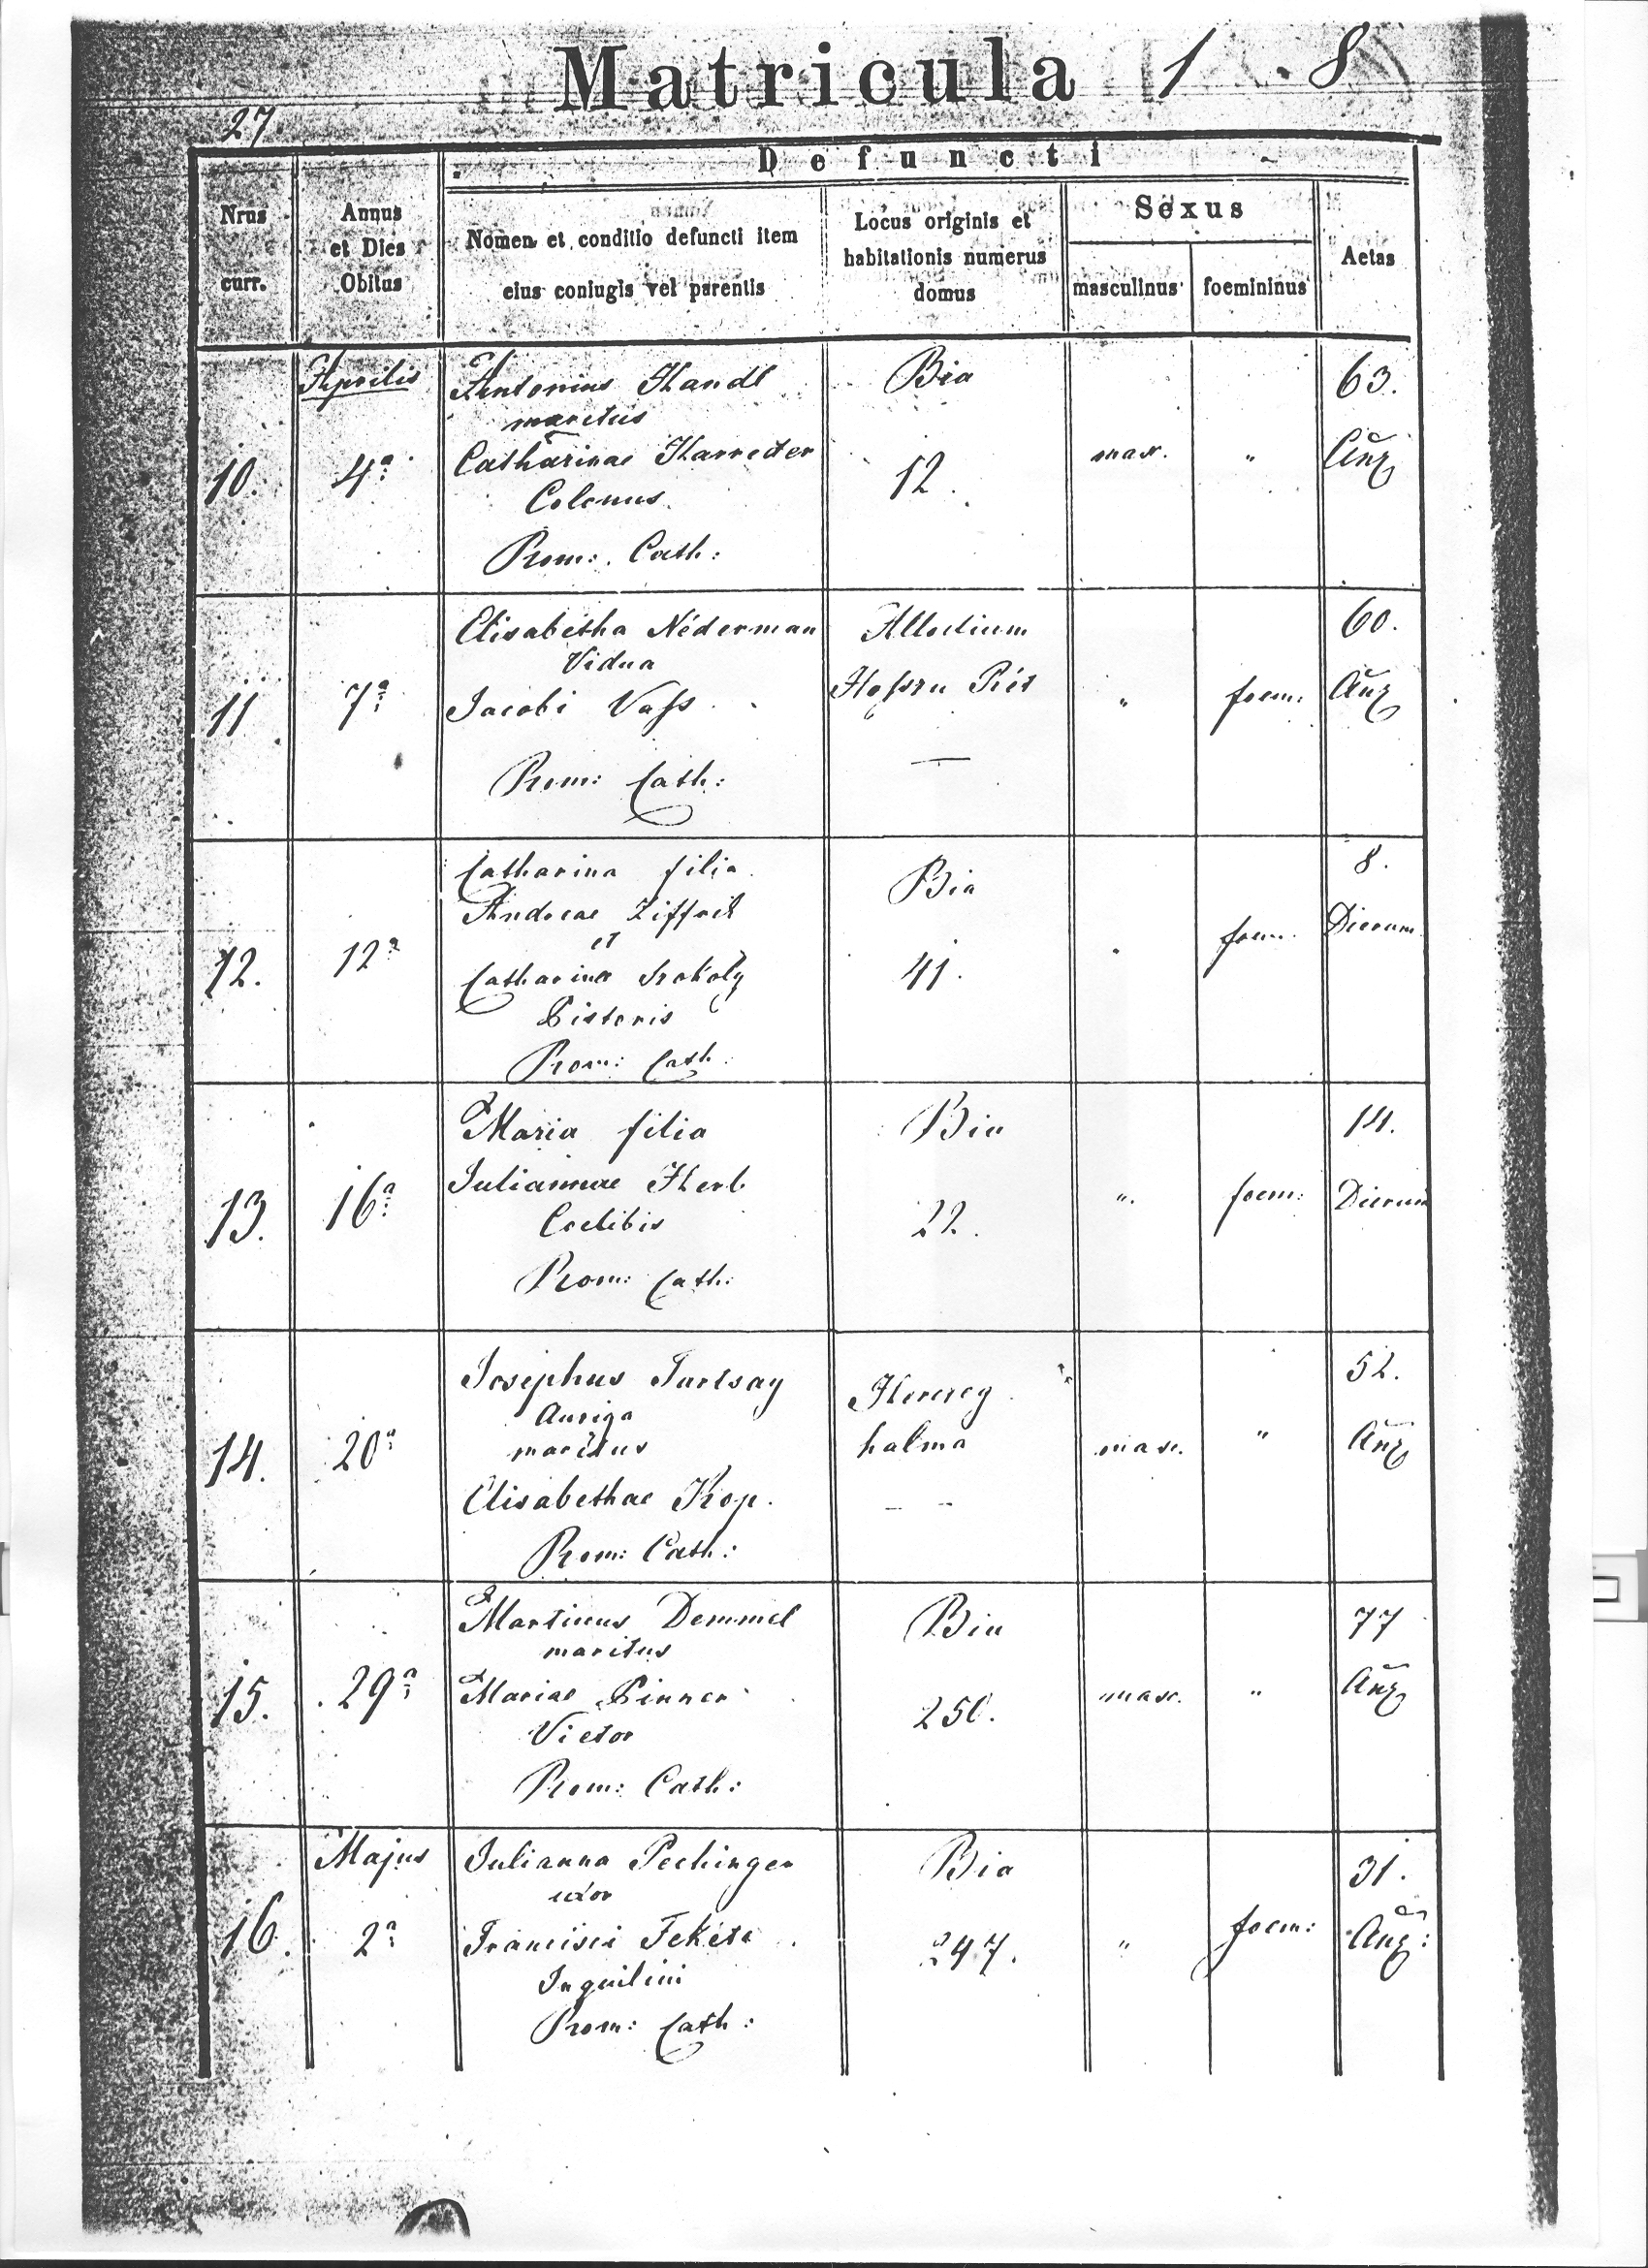 Matricula 1 8
27
Defuncti
Nrus curr.
Annus et Dies Obitus
Nomen et conditio defuncti item eius coniugis vel parentis
Locus originis et habitationis numerus domus
Sexus
masculinus
foemininus
Aetas
Aprilis
Antonius Handl
Bia
63.
maritus
10.
4ª
Catharinae Harreder
12.
masc.
"
Añz
Colonus.
Rom: Cath:
Elisabetha Néderman
Allodium
60.
Vidua
11
7ª
Jacobi Vass
Hoszu Rét
"
foem:
Añz
Rom: Cath:
—
Catharina filia
Bia
8.
Andreae Ziffrik
et
12.
12ª
Catharina Srokoly
41.
"
foem.
Dierum
Pistoris
Rom: Cath.
Maria filia
Bia
14.
13.
16ª
Juliannae Herb
22.
"
foem:
Dierum
Coelibis
Rom: Cath:
Josephus Tartsay
Herczeg
52.
Auriga
14.
20ª
maritus
halma
masc.
"
Añz
Elisabethae Kop.
- -
Rom: Cath:
Martinus Demmel
Bia
77
maritus
15.
29ª
Mariae Pinner
250.
masc.
"
Añz
Vietor
Rom: Cath:
Majus
Julianna Pechinger
Bia
31.
uxor
16.
2ª
Francisci Fekete
247.
"
foem:
Añz:
Inquilini
Rom: Cath: